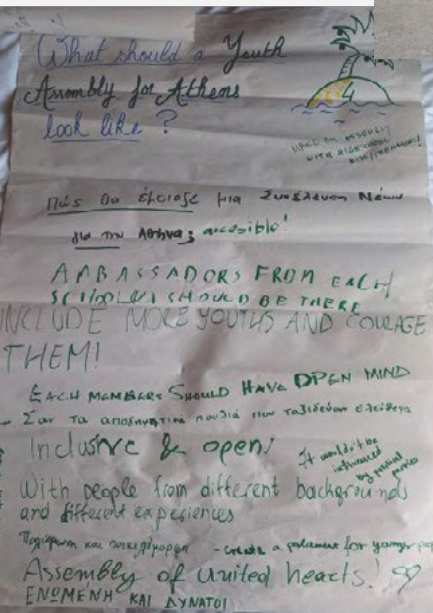 What should a Youth
Assembly for Athens
look like?
WITH HIGH SCHOOL
Πώς θα έμοιαζε μια Συνέλευση Νέων
για την Αθήνα; accessible!
AMBASSADORS FROM EACH
SCHOOL SHOULD BE THERE
INCLUDE MORE YOUTHS AND COURAGE
THEM!
EACH MEMBERS SHOULD HAVE OPEN MIND
Σαν τα αποδημητικά πουλιά που ταξιδεύουν ελεύθερα
Inclusive & open!
It wouldn't be
influenced
by
parties
With people from different backgrounds
and different experiences
και - create a for
Assembly of united hearts!
ΕΝΩΜΕΝΗ ΚΑΙ ΔΥΝΑΤΟΙ